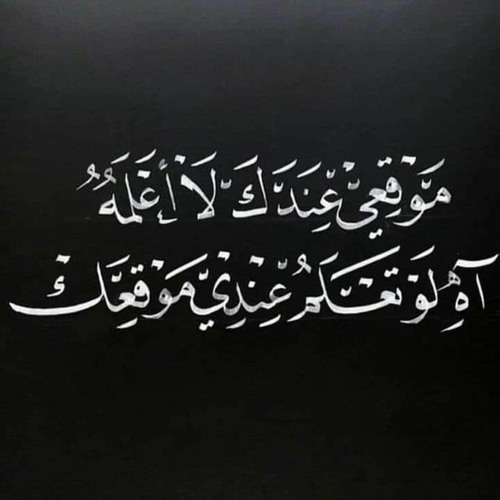 مَوْقِعِيْ عِنْدَكَ لَا أَعْلَمُهُ
آهِ لَوْ تَعْلَمُ عِنْدِيْ مَوْقِعَكْ